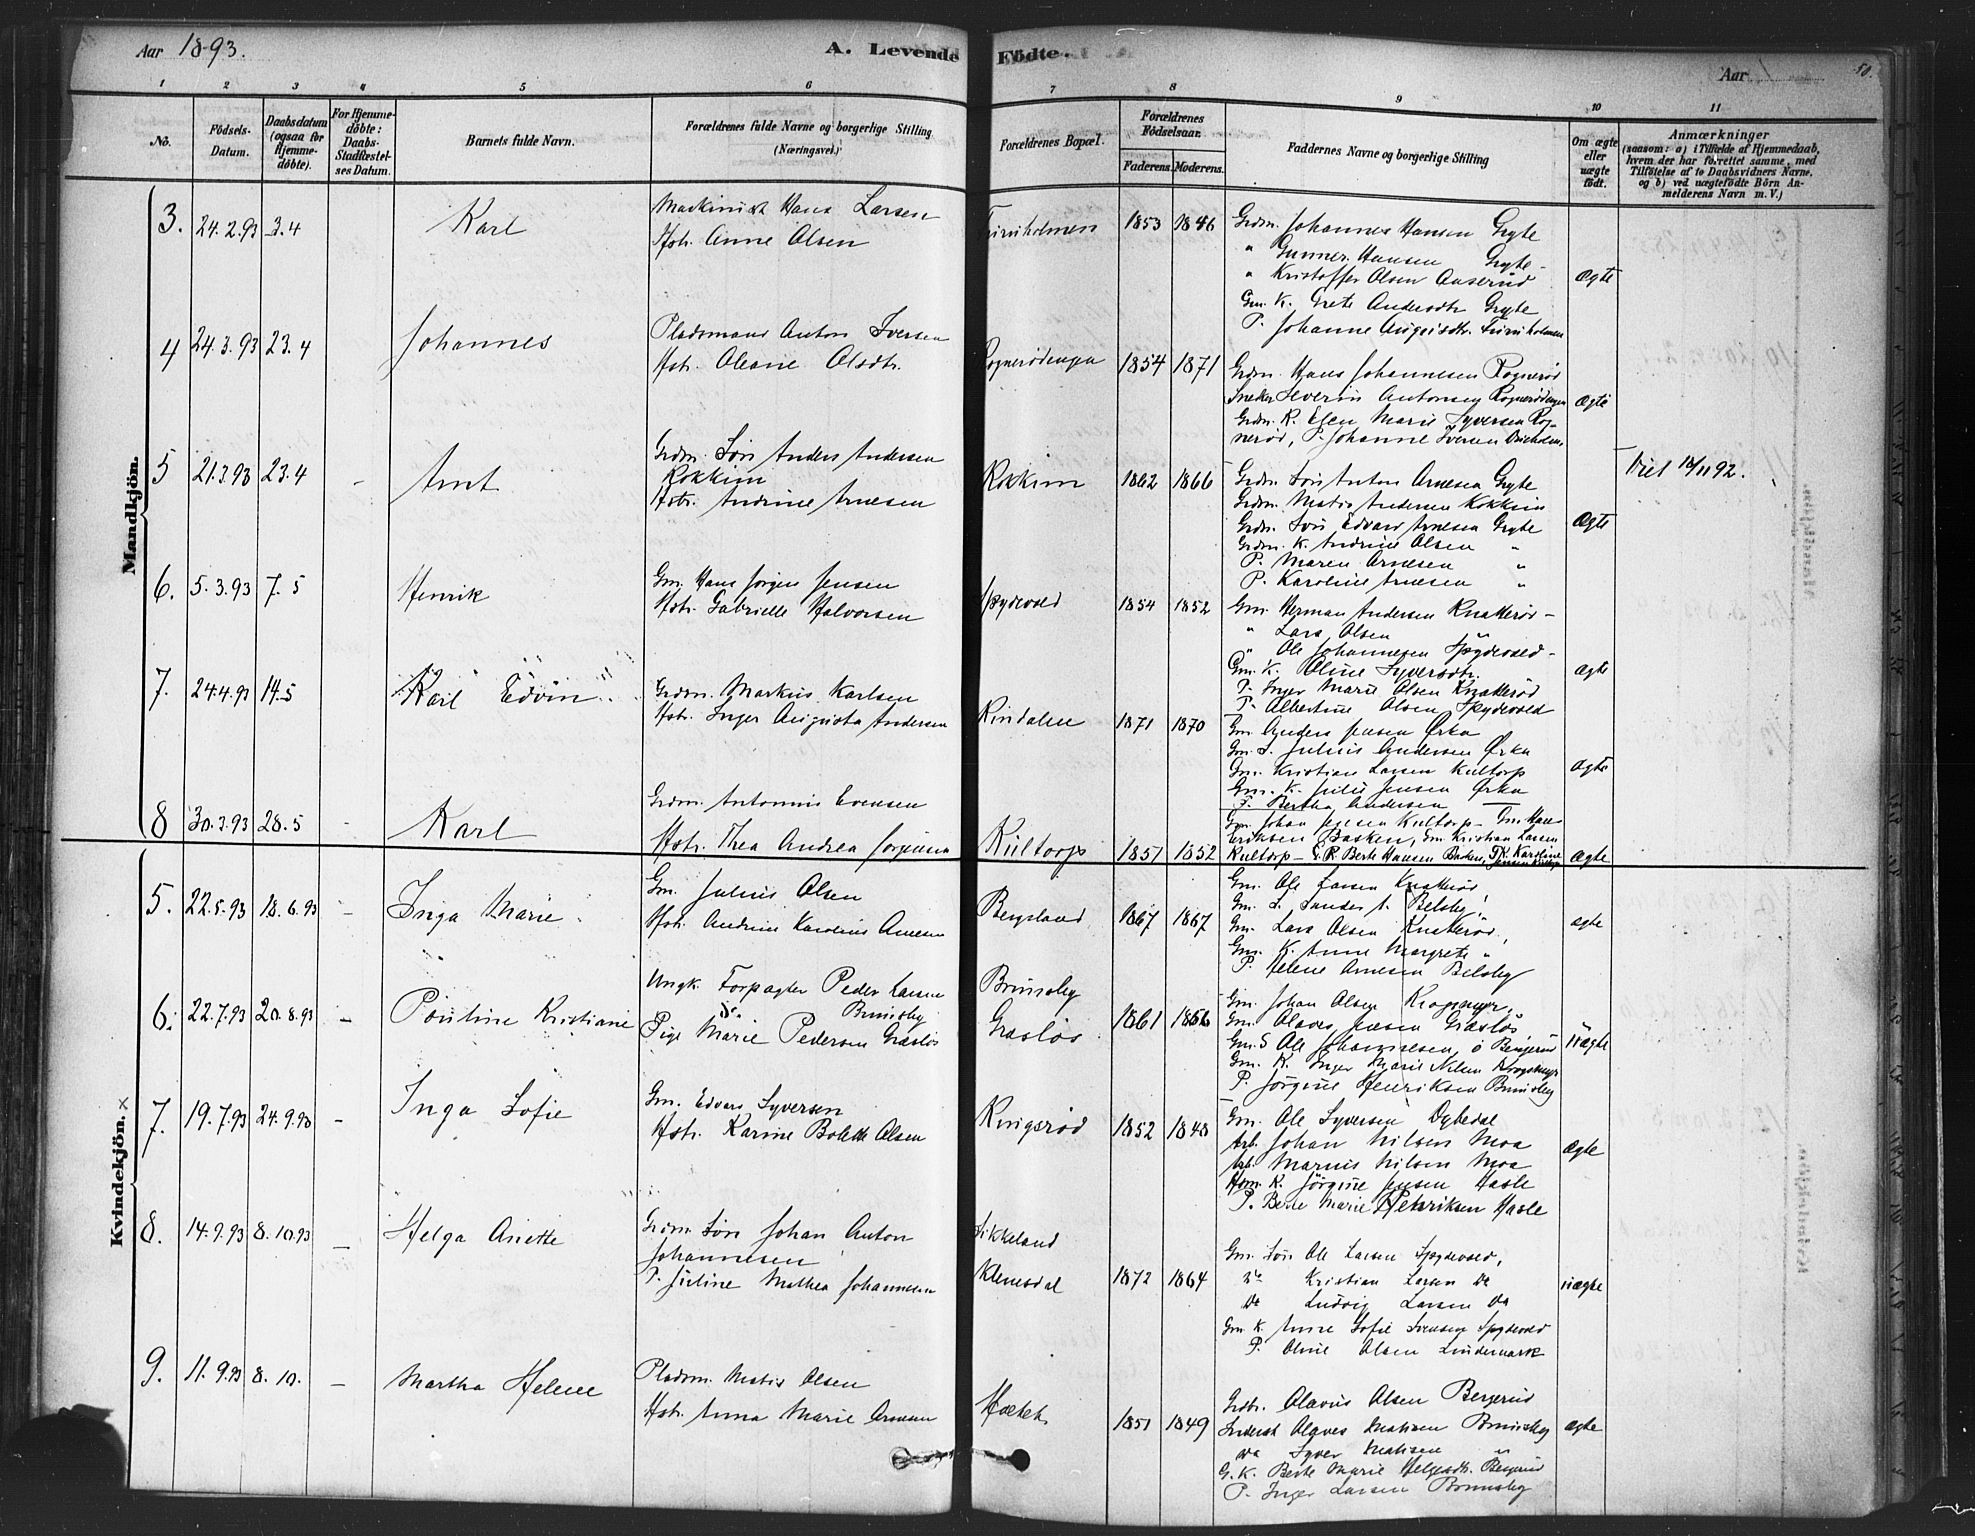 Aar 1893.
A. Levende Födte.
Aar
50.
1 2 3 4 5 6 7 8 9 10 11
No.
Födsels-Datum.
Daabsdatum (ogsaa for Hjemme-döbte).
For Hjemme-döbte: Daabs-Stadfæstel-ses Datum.
Barnets fulde Navn.
Forældrenes fulde Navne og borgerlige Stilling (Næringsvei.)
Forældrenes Bopæl.
Forældrenes Födselsaar.
Faderens. Moderens.
Faddernes Navne og borgerlige Stilling
Om ægte eller uægte födt.
Anmærkninger
(saasom: a) i Tilfælde af Hjemmedaab,
hvem der har forrettet samme, med
Tilföielse af to Daabsvidners Navne,
og b) ved uægtefödte Börn An-
melderens Navn m. V.)
Mandkjön.
3. 24.2.93 3.4 Karl
Maskinist Hans Larsen
Hstr. Anne Olsen
1853 1846
Grdm. Johannes Hansen Gryte
" Gunner Hansen Gryte
" Kristoffer Olsen Aaserud
Gm. K. Grete Andersdtr Gryte
P. Johanne Augustdtr.
Ægte
4 24.3.93 23.4 Johannes
Pladsmand Anton Iversen
Hstr. Oleane Olsdtr.
Rognerödengen 1854 1871
Grdm. Hans Johannesen Rognerød
Snedker Severin Antonsen Rognerödengen
Grdm. K. Elen Marie Syversen Rog-
nerød, P. Johanne Iversen
Ægte
5 21.3.93 23.4 - Arnt
Grdm. Søn Anders Andersen
Kokkim
Hstr. Andrine Arnesen
Kokkim 1862 1866
Grdm. Søn Anton Arnesen Gryte
Grdm. Matis Andersen Kokkim
Grdm. Søn Edvard Arnesen Gryte
Grdm. K. Andrine Olsen "
P. Maren Arnesen "
P. Karoline Arnesen "
Ægte
Viet 18/11 92.
6. 5.3.93 7.5 Henrik
Gm. Hans Jørgen Jensen
Hstr. Gabrielle Halvorsen
Spydevold 1854 1852
Gm. Herman Andersen Knatterød -
" Lars Olsen
" Ole Johannesen Spydevold -
Gm. K. Oline Syversdtr.
P. Inger Marie Olsen Knatterød
P. Albertine Olsen Spydevold
ægte
7. 24.4.93 14.5 Karl Edvin
Grdm. Markus Karlsen
Hstr. Inger Augusta Andersen
Rindalen 1871 1870
Gm. Anders Jensen Ørka
Gm. S. Julius Andersen Ørka
Gm. Kristian Larsen Kultorp
Gm. K. Julie Jensen Ørka
P. Bertha Andersen —
Ægte
8 30.3.93 28.5 - Karl
Grdm. Antonius Evensen
Hstr. Thea Andrea
Kultorp 1851 1852
Gm. Johan Jensen Kultorp - Gm Hans
Eriksen Basken, Gm. Kristian Larsen
Kultorp - G. K. Berte Hansen Basken, P. K. Karoline
Ægte
Kvindekjön.
5. 22.5.93 18.6.93 - Inga Marie
Gm. Julius Olsen
Hstr. Andrine Karoline Arnesen
Bergsland 1867 1867
Gm. Ole Larsen Knatterød,
Gm. S. Belsby,
Gm. Lars Olsen Knatterød,
Gm. K. Anne Margrete "
P. Helene Arnesen Belsby
ægte
6. 22.7.93 20.8.93 - Pouline Kristiane
Ungk. Forpagter Peder Larsen
Brunsby
Pige Marie Pedersen Græsløs
Brunsby
Græsløs 1861 1866
Gm. Johan Olsen Krogsmyr,
Gm. Olaves Jensen Græsløs,
Gm. S Ole Johannesen ø Bergerud
Gm. K. Inger Marie Nilsen Krogsmyr
P. Jørgine Henriksen Brunsby
Uægte
7. 19.7.93 24.9.93 - Inga Sofie
Gm. Edvard Syversen
Hstr. Karine Bolette Olsen
Ringsrød 1852 1848
Gm. Ole Syversen Dybedal
Arb. Johan Nilsen Moa
Arb. Marius Nilsen Moa
Hsm. K. Jörgine Jensen Hasle
P. Berte Marie Henriksen Hasle
Ægte
8. 14.9.93 8.10.93 - Helga Anette
Grdm. Søn Johan Anton
Johannesen
P. Juline Mathea Johannesen
Sikkeland
Klemesdal 1872 1864
Gm. Søn Ole Larsen Spydevold,
Do Kristian Larsen Do
Do Ludvig Larsen Do
Gm. K. Anne Sofie Svensen Spydevold
P. Oline Olsen Lindemark
uægte
9. 11.9.93 8.10. - Martha Helene
Pladsm. Matis Olsen
Hstr. Anna Marie
1851 1849
Grdbr. Olavus Olsen Bergerud
Olaves Matisen Brunsby
Do Syver Matisen "
G. K. Berte Marie Helgesdtr. Bergerud
P. Inger Larsen Brunsby
ægte